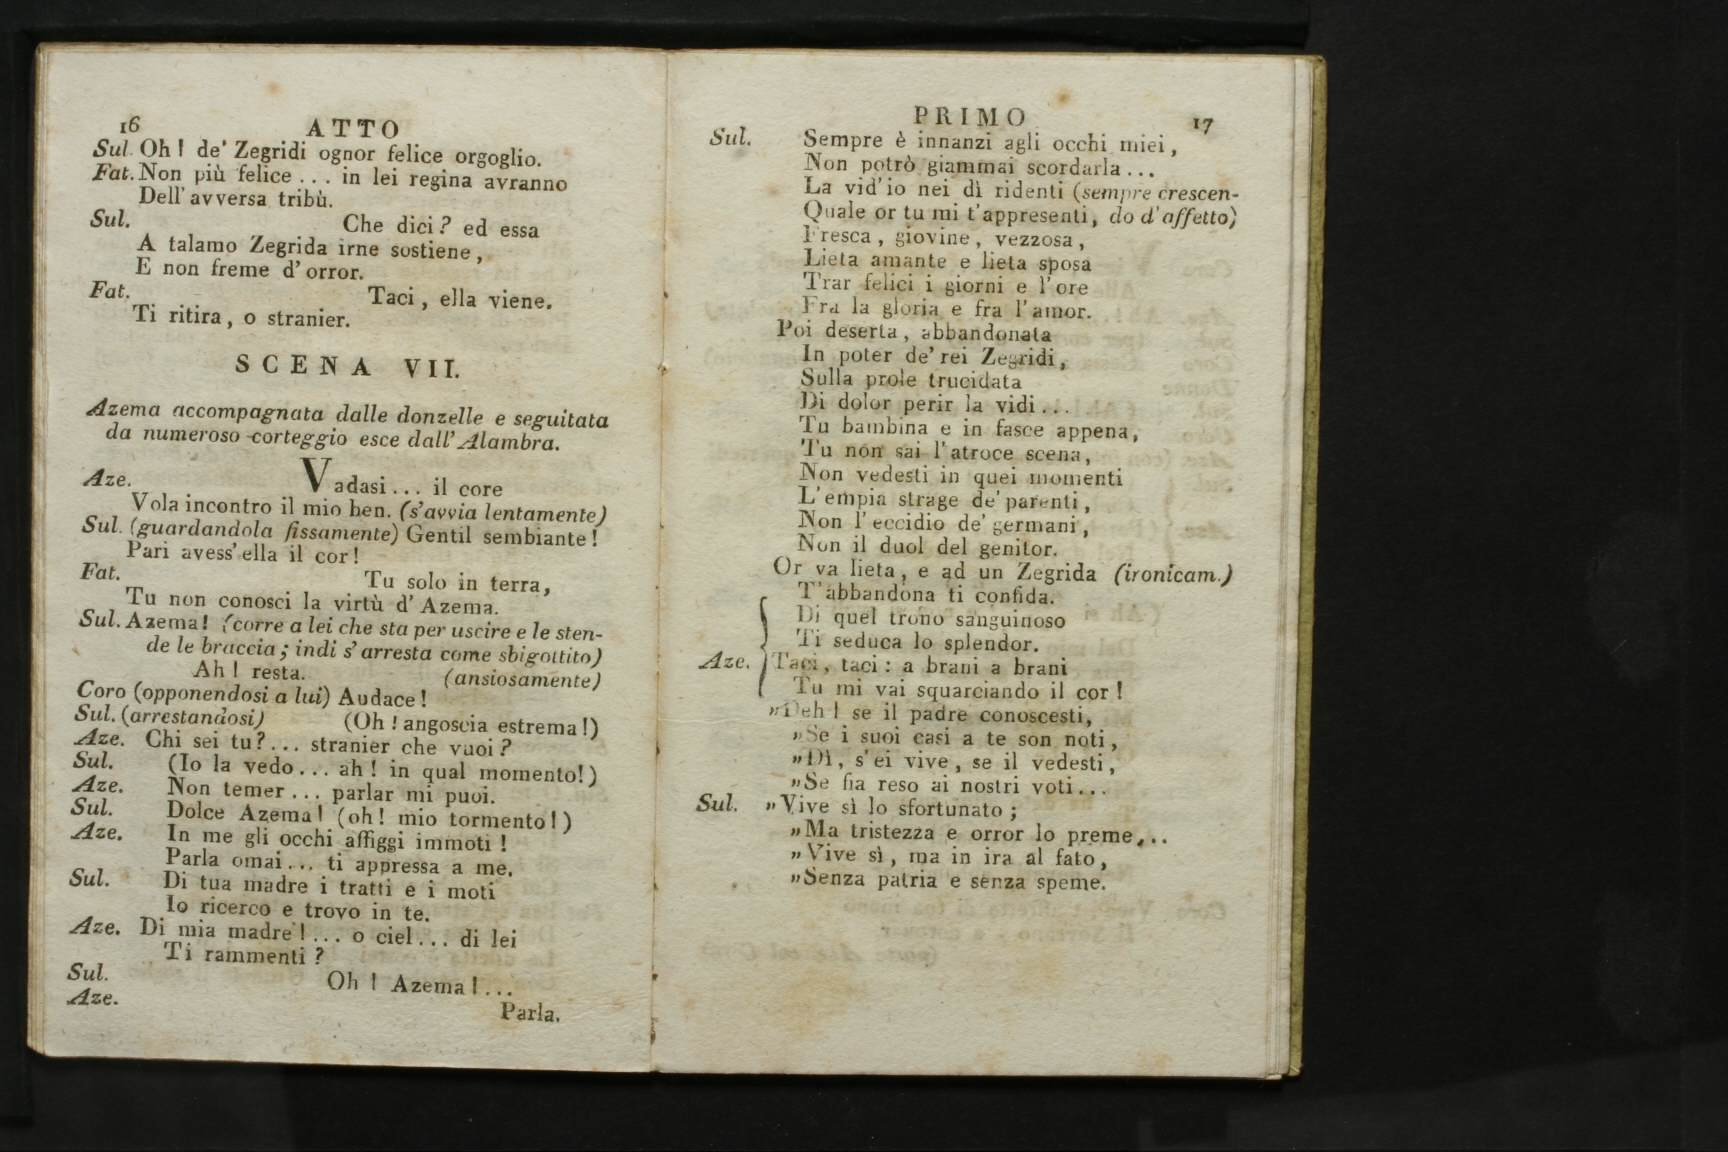 16 ATTO
Sul. Oh! de' Zegridi ognor felice orgoglio.
Fat. Non più felice ... in lei regina avranno
Dell' avversa tribù.
Sul. Che dici? ed essa
A talamo Zegrida irne sostiene,
E non freme d' orror.
Fat. Taci, ella viene.
Ti ritira, o stranier.
SCENA VII.
Azema accompagnata dalle donzelle e seguitata
da numeroso corteggio esce dall' Alambra.
Aze. Vadasi... il core
Vola incontro il mio ben. (s'avvia lentamente)
Sul. (guardandola fissamente) Gentil sembiante!
Pari avess' ella il cor!
Fat. Tu solo in terra,
Tu non conosci la virtù d' Azema.
Sul. Azema! (corre a lei che sta per uscire e le sten-
de le braccia; indi s' arresta come sbigottito)
Ah! resta. (ansiosamente)
Coro (opponendosi a lui) Audace!
Sul. (arrestandosi) (Oh! angoscia estrema!)
Aze. Chi sei tu?... stranier che vuoi?
Sul. (Io la vedo... ah! in qual momento!)
Aze. Non temer... parlar mi puoi.
Sul. Dolce Azema! (oh! mio tormento!)
Aze. In me gli occhi affiggi immoti!
Parla omai... ti appressa a me.
Sul. Di tua madre i tratti e i moti
Io ricerco e trovo in te.
Aze. Di mia madre!... o ciel... di lei
Ti rammenti?
Sul. Oh! Azema!...
Aze. Parla.
PRIMO 17
Sul. Sempre è innanzi agli occhi miei,
Non potrò giammai scordarla...
La vid'io nei dì ridenti (sempre crescen-
Quale or tu mi t'appresenti, do d'affetto)
Fresca, giovine, vezzosa,
Lieta amante e lieta sposa
Trar felici i giorni e l'ore
Fra la gloria e fra l'amor.
Poi deserta, abbandonata
In poter de' rei Zegridi,
Sulla prole trucidata
Di dolor perir la vidi...
Tu bambina e in fasce appena,
Tu non sai l'atroce scena,
Non vedesti in quei momenti
L'empia strage de' parenti,
Non l'eccidio de' germani,
Non il duol del genitor.
Or va lieta, e ad un Zegrida (ironicam.)
T'abbandona ti confida.
Di quel trono sanguinoso
Ti seduca lo splendor.
Aze. Taci, taci: a brani a brani
Tu mi vai squarciando il cor!
"Deh! se il padre conoscesti,
"Se i suoi casi a te son noti,
"Dì, s'ei vive, se il vedesti,
"Se fia reso ai nostri voti...
Sul. "Vive sì lo sfortunato;
"Ma tristezza e orror lo preme...
"Vive sì, ma in ira al fato,
"Senza patria e senza speme.